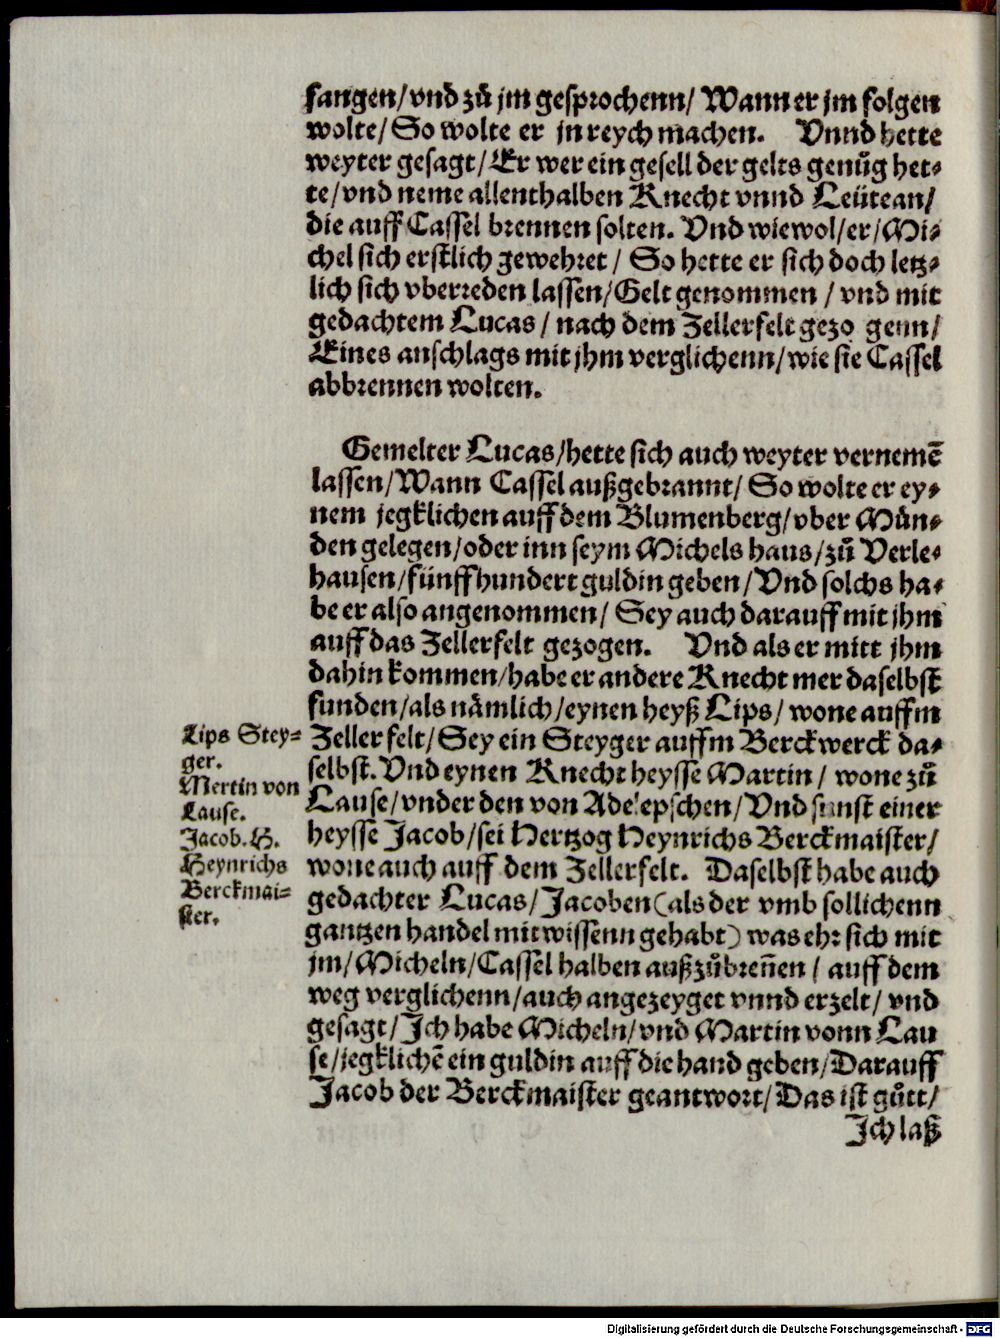 fangen/vnd zů jm gesprochenn/ Wann er jm folgen
wolte/ So wolte er jn reych machen. Vnnd hette
weyter gesagt/ Er wer ein gesell der gelts genůg het-
te/vnd neme allenthalben Knecht vnnd Leüte an/
die auff Cassel brennen solten. Vnd wiewol/er/Mi-
chel sich erstlich gewehret/ So hette er sich doch letz-
lich sich vberreden lassen/Gelt genommen / vnd mit
gedachtem Lucas / nach dem Zellerfelt gezo genn/
Eines anschlags mit jhm verglichenn/wie sie Cassel
abbrennen wolten.
Gemelter Lucas/hette sich auch weyter vernemē
lassen/Wann Cassel außgebrannt/ So wolte er ey-
nem jegklichen auff dem Blumenberg/vber Mün-
den gelegen/oder inn seym Michels haus/zů Verle-
hausen/fünffhundert guldin geben/Vnd solchs ha-
be er also angenommen/ Sey auch darauff mit jhm
auff das Zellerfelt gezogen. Vnd als er mitt jhm
dahin kommen/habe er andere Knecht mer daselbst
funden/als nämlich/eynen heyß Lips/ wone auffm
Zellerfelt/Sey ein Steyger auffm Berckwerck da-
selbst. Vnd eynen Knecht heysse Martin / wone zů
Lause/vnder den von Adelepschen/Vnd sunst einer
heysse Jacob/sei Hertzog Heynrichs Berckmaister/
wone auch auff dem Zellerfelt. Daselbst habe auch
gedachter Lucas/Jacoben(als der vmb sollichenn
gantzen handel mitwissenn gehabt) was ehr sich mit
jm/Micheln/Cassel halben außzůbreñen / auff dem
weg verglichenn/auch angezeyget vnnd erzelt/ vnd
gesagt/Ich habe Micheln/vnd Martin vonn Lau
se/jegklichē ein guldin auff die hand geben/Darauff
Jacob der Berckmaister geantwort/Das ist gůtt/
Ich laß
Lips Stey-
ger.
Mertin von
Lause.
Jacob. H.
Heynrichs
Berckmai-
ster.
Digitalisierung gefördert durch die Deutsche Forschungsgemeinschaft - DFG